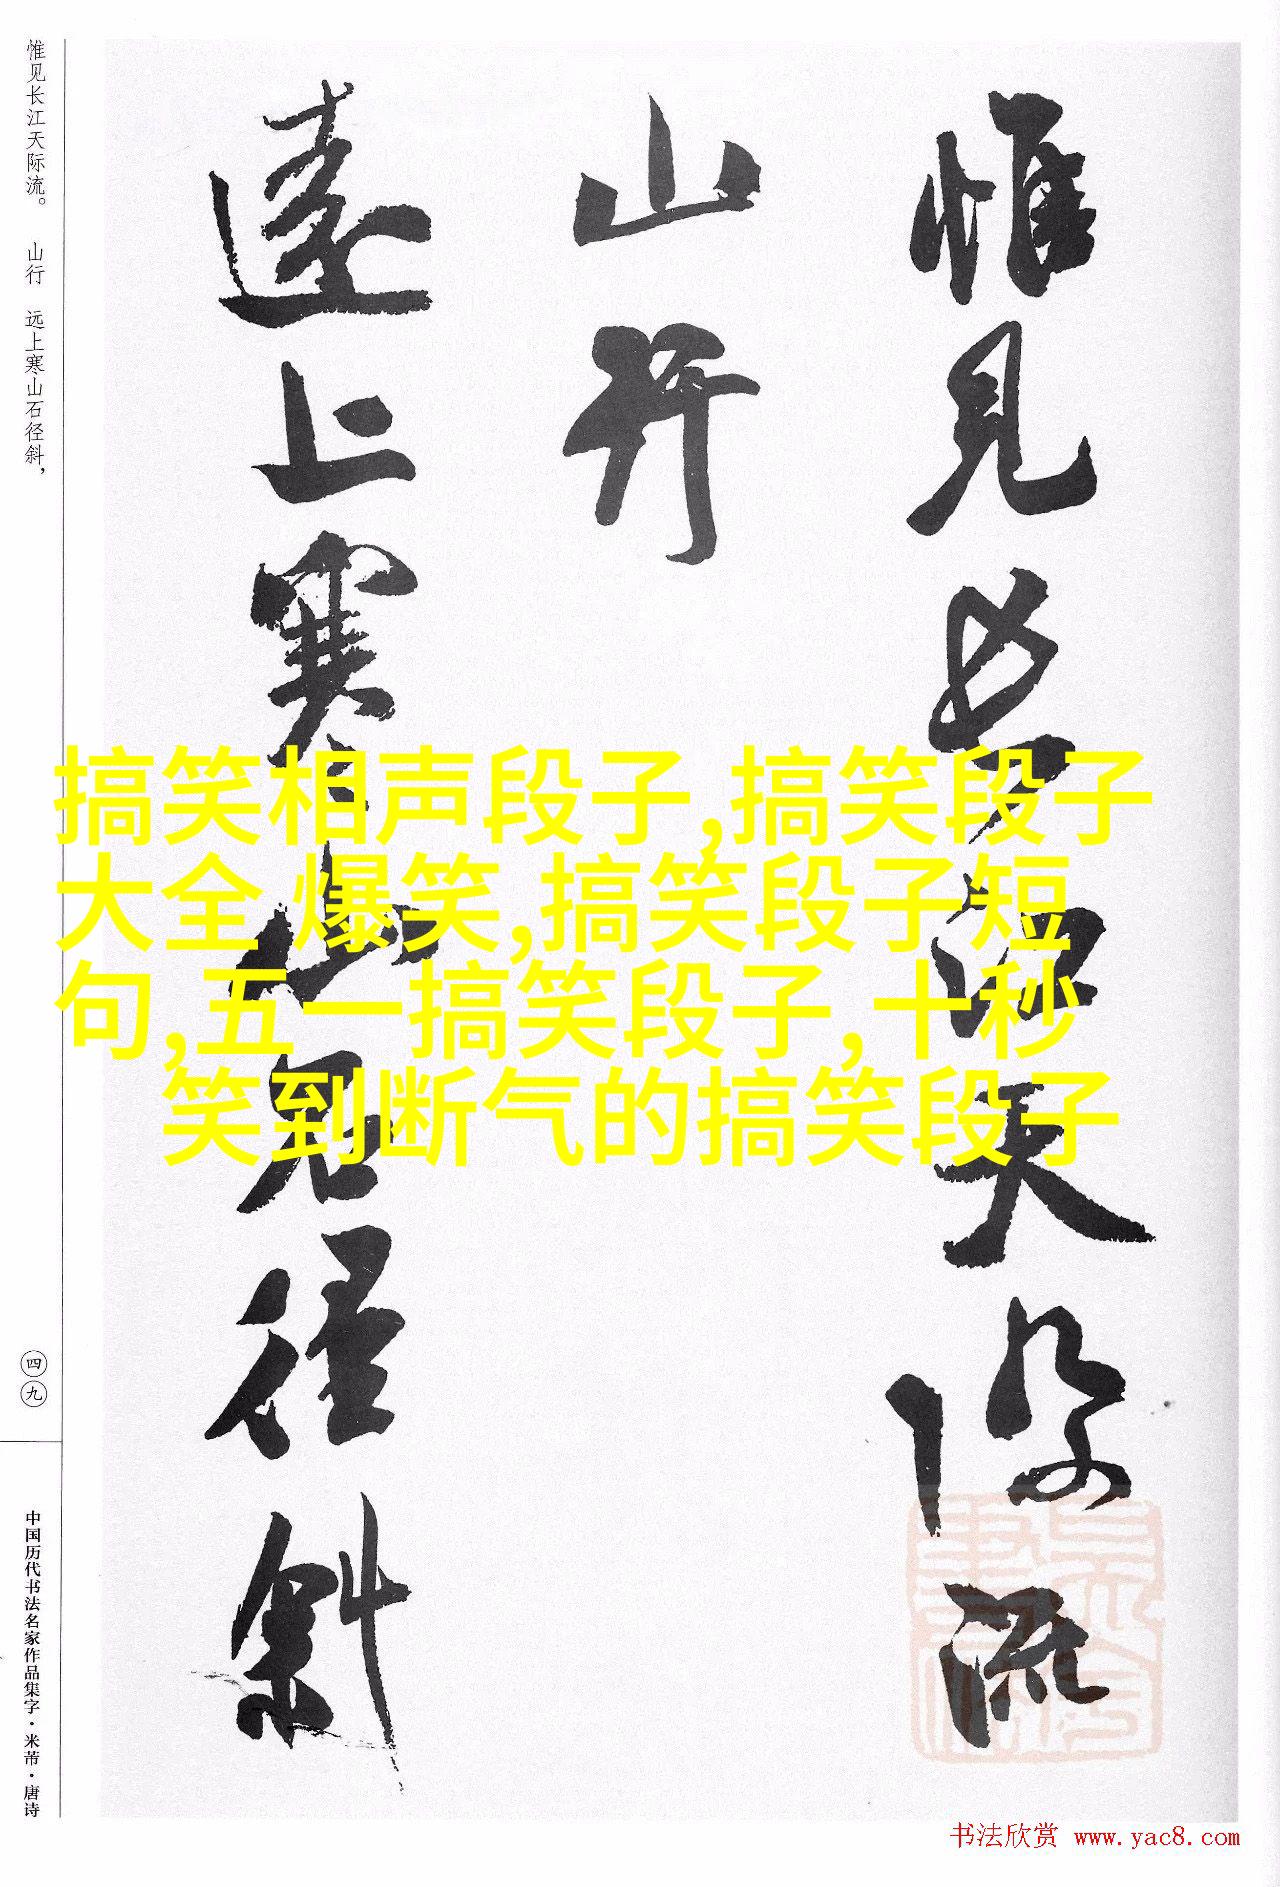 惟见长江天际流。 山行 远上寒山石径斜，
四九
中国历代书法名家作品集字·米芾·唐诗
惟见长江天际流
山行
远上寒山石径斜
搞笑相声段子,搞笑段子
大全 爆笑,搞笑段子短
句,五一搞笑段子,十秒
笑到断气的搞笑段子
书法欣赏 www.yac8.com